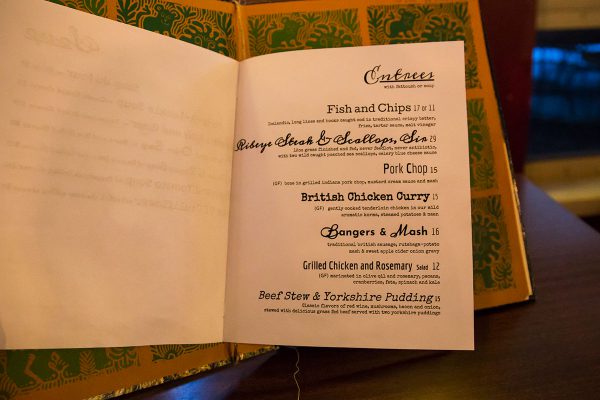 Entrees
with fattoush or soup
Fish and Chips 17 or 11
Icelandic, long lines and hooks caught cod in traditional crispy batter,
fries, tartar sauce, malt vinegar
Ribeye Steak & Scallops, Sir 29
12oz grass finished and fed, never feedlot, never antibiotic,
with two wild caught poached sea scallops, celery blue cheese sauce
Pork Chop 15
(GF) bone in grilled Indiana pork chop, mustard cream sauce and mash
British Chicken Curry 15
(GF) gently cooked tenderloin chicken in our mild
aromatic korma, steamed potatoes & naan
Bangers & Mash 16
traditional british sausage, rutabaga-potato
mash & sweet apple cider onion gravy
Grilled Chicken and Rosemary Salad 12
(GF) marinated in olive oil and rosemary, pecans,
cranberries, feta, spinach and kale
Beef Stew & Yorkshire Pudding 15
Classic flavors of red wine, mushrooms, bacon and onion,
stewed with delicious grass fed beef served with two yorkshire puddings